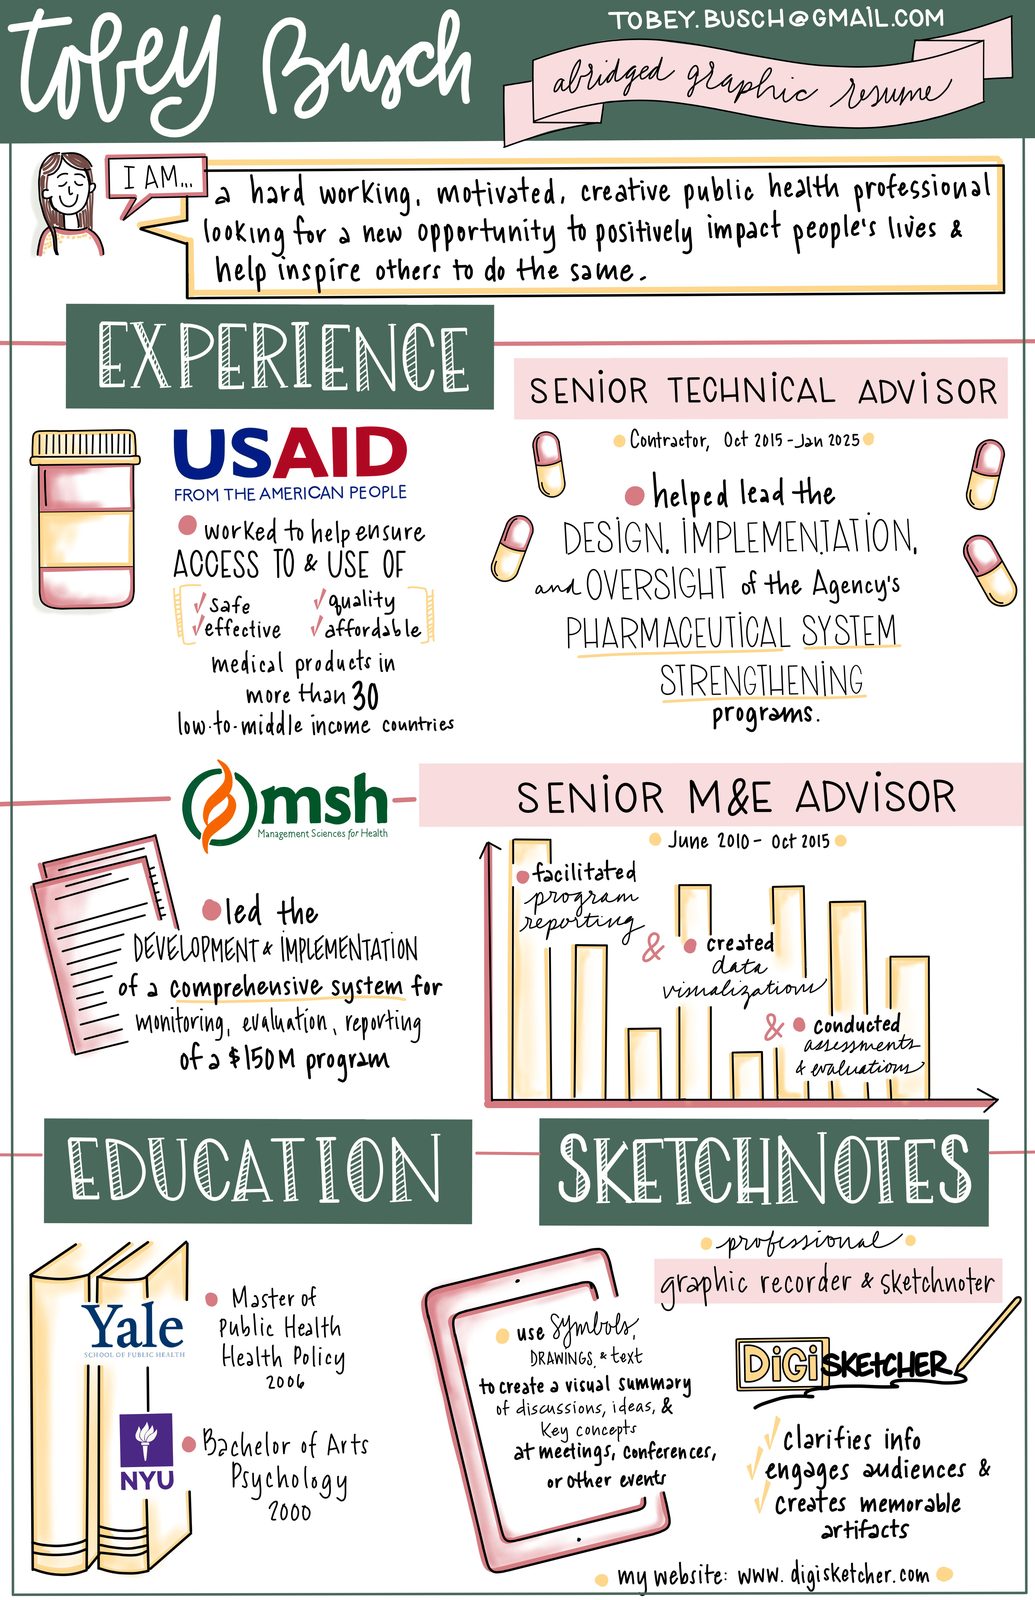 tobey Busch
TOBEY.BUSCH@GMAIL.COM
abridged graphic resume
I AM...
a hard working, motivated, creative public health professional
looking for a new opportunity to positively impact people's lives &
help inspire others to do the same.
EXPERIENCE
USAID
FROM THE AMERICAN PEOPLE
worked to help ensure
ACCESS TO & USE OF
✓ safe ✓ quality
✓ effective ✓ affordable
medical products in
more than 30
low-to-middle income countries
SENIOR TECHNICAL ADVISOR
Contractor, Oct 2015-Jan 2025
helped lead the
DESIGN, IMPLEMENTATION,
and OVERSIGHT of the Agency's
PHARMACEUTICAL SYSTEM
STRENGTHENING
programs.
msh
Management Sciences for Health
led the
DEVELOPMENT & IMPLEMENTATION
of a comprehensive system for
monitoring, evaluation, reporting
of a $150M program
SENIOR M&E ADVISOR
June 2010 - Oct 2015
facilitated
program
reporting
& created
data
visualizations
& conducted
assessments
& evaluations
EDUCATION
Yale
SCHOOL OF PUBLIC HEALTH
Master of
Public Health
Health Policy
2006
NYU
Bachelor of Arts
Psychology
2000
SKETCHNOTES
professional
graphic recorder & sketchnoter
use symbols,
DRAWINGS, & text
to create a visual summary
of discussions, ideas, &
Key concepts
at meetings, conferences,
or other events
DiGiSKETCHER
✓ clarifies info
✓ engages audiences &
✓ creates memorable
artifacts
my website: www.digisketcher.com